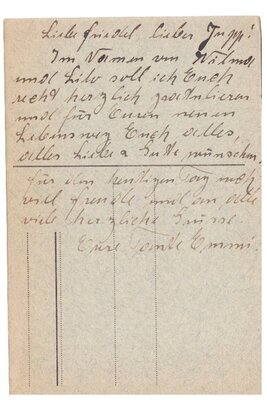 Liebe Friedel lieber Jupp!
Im Namen von Wilma
und Lilo soll ich Euch
recht herzlich gratulieren
und für Euren neuen
Lebensweg Euch alles,
alles Liebe & Gute wünschen,
für den heutigen Tag noch
viel Freude und an alle
viele herzliche Grüsse.
Eure Tante Emmi.